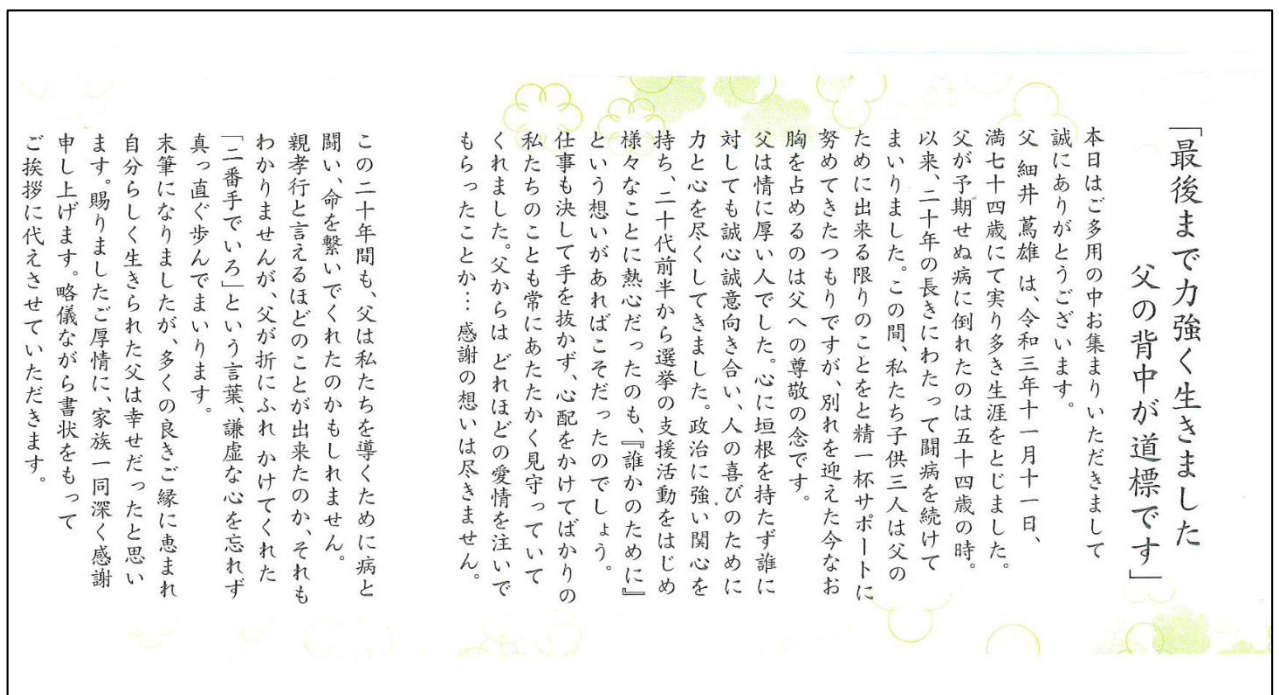 「最後まで力強く生きました
父の背中が道標です」
本日はご多用の中お集まりいただきまして
誠にありがとうございます。
父 細井 蔦雄 は、令和三年十一月十一日、
満七十四歳にて実り多き生涯をとじました。
父が予期せぬ病に倒れたのは五十四歳の時。
以来、二十年の長きにわたって闘病を続けて
まいりました。この間、私たち子供三人は父の
ために出来る限りのことをと精一杯サポートに
努めてきたつもりですが、別れを迎えた今なお
胸を占めるのは父への尊敬の念です。
父は情に厚い人でした。心に垣根を持たず誰に
対しても誠心誠意向き合い、人の喜びのために
力と心を尽くしてきました。政治に強い関心を
持ち、二十代前半から選挙の支援活動をはじめ
様々なことに熱心だったのも、『誰かのために』
という想いがあればこそだったのでしょう。
仕事も決して手を抜かず、心配をかけてばかりの
私たちのことも常にあたたかく見守っていて
くれました。父からは どれほどの愛情を注いで
もらったことか…感謝の想いは尽きません。
この二十年間も、父は私たちを導くために病と
闘い、命を繋いでくれたのかもしれません。
親孝行と言えるほどのことが出来たのか、それも
わかりませんが、父が折にふれ かけてくれた
「二番手でいろ」という言葉、謙虚な心を忘れず
真っ直ぐ歩んでまいります。
末筆になりましたが、多くの良きご縁に恵まれ
自分らしく生きられた父は幸せだったと思い
ます。賜りましたご厚情に、家族一同深く感謝
申し上げます。略儀ながら書状をもって
ご挨拶に代えさせていただきます。